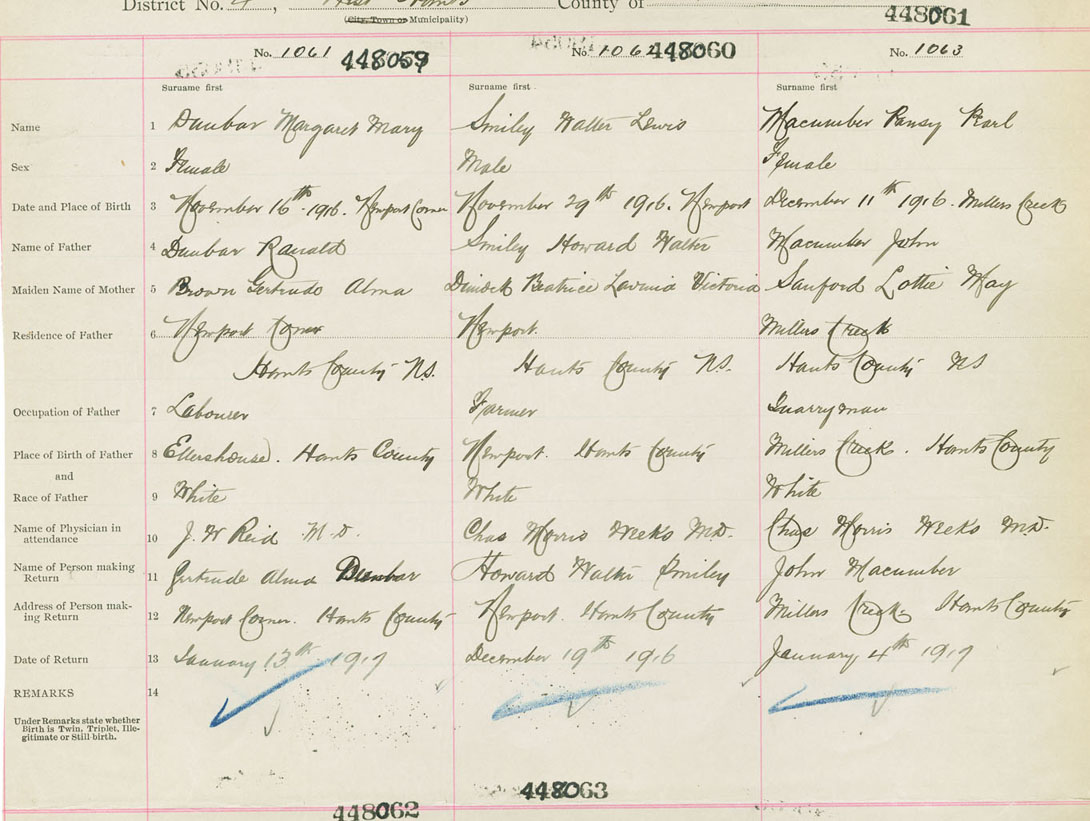 District No. 4, West Hants County of
(City, Town or Municipality)
448061
No. 1061 448059 No. 1062 448060 No. 1063
Surname first Surname first Surname first
Name 1 Dunbar Margaret Mary Smiley Walter Lewis Macumber Pansy Pearl
Sex 2 Female Male Female
Date and Place of Birth 3 November 16th 1916. Newport Corner November 29th 1916. Newport December 11th 1916. Millers Creek
Name of Father 4 Dunbar Ranald Smiley Howard Walter Macumber John
Maiden Name of Mother 5 Brown Gertrude Alma Dimock Beatrice Lavinia Victoria Sanford Lottie May
Residence of Father 6 Newport Corner Newport. Millers Creek
Hants County N.S. Hants County N.S. Hants County NS
Occupation of Father 7 Labourer Farmer Quarryman
Place of Birth of Father 8 Ellershouse. Hants County Newport. Hants County Millers Creek. Hants County
and
Race of Father 9 White White White
Name of Physician in
attendance 10 J. W Reid M.D. Chas Morris Weeks M.D. Chas Morris Weeks M.D.
Name of Person making
Return 11 Gertrude Alma Dunbar Howard Walter Smiley John Macumber
Address of Person mak-
ing Return 12 Newport Corner. Hants County Newport. Hants County Millers Creek Hants County
Date of Return 13 January 13th 1917 December 19th 1916 January 4th 1917
REMARKS 14
Under Remarks state whether
Birth is Twin, Triplet, Ille-
gitimate or Still-birth.
448063
448062